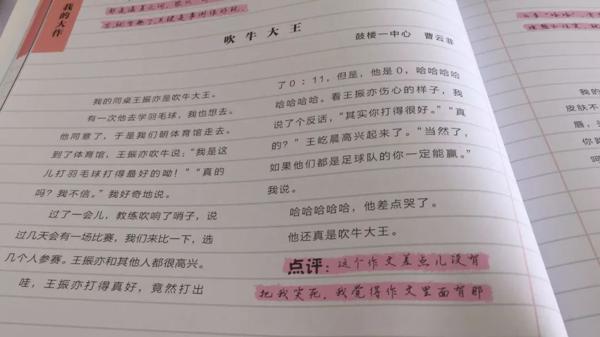 我的大作
吹牛大王
鼓楼一中心 曹云菲
我的同桌王振亦是吹牛大王。
有一次他去学羽毛球，我也想去。
他同意了，于是我们朝体育馆走去。
到了体育馆，王振亦吹牛说：“我是这
儿打羽毛球打得最好的呦！”“真的
吗？我不信。”我好奇地说。
过了一会儿，教练吹响了哨子，说
过几天会有一场比赛，我们来比一下，选
几个人参赛。王振亦和其他人都很高兴。
哇，王振亦打得真好，竟然打出
了0：11，但是，他是0，哈哈哈哈
哈哈哈哈。看王振亦伤心的样子，我
说了个反话，“其实你打得很好。”“真
的？”王屹晨高兴起来了。“当然了，
如果他们都是足球队的你一定能赢。”
我说。
哈哈哈哈哈，他差点哭了。
他还真是吹牛大王。
点评：这个作文差点儿没有
把我笑死，我觉得作文里面有那